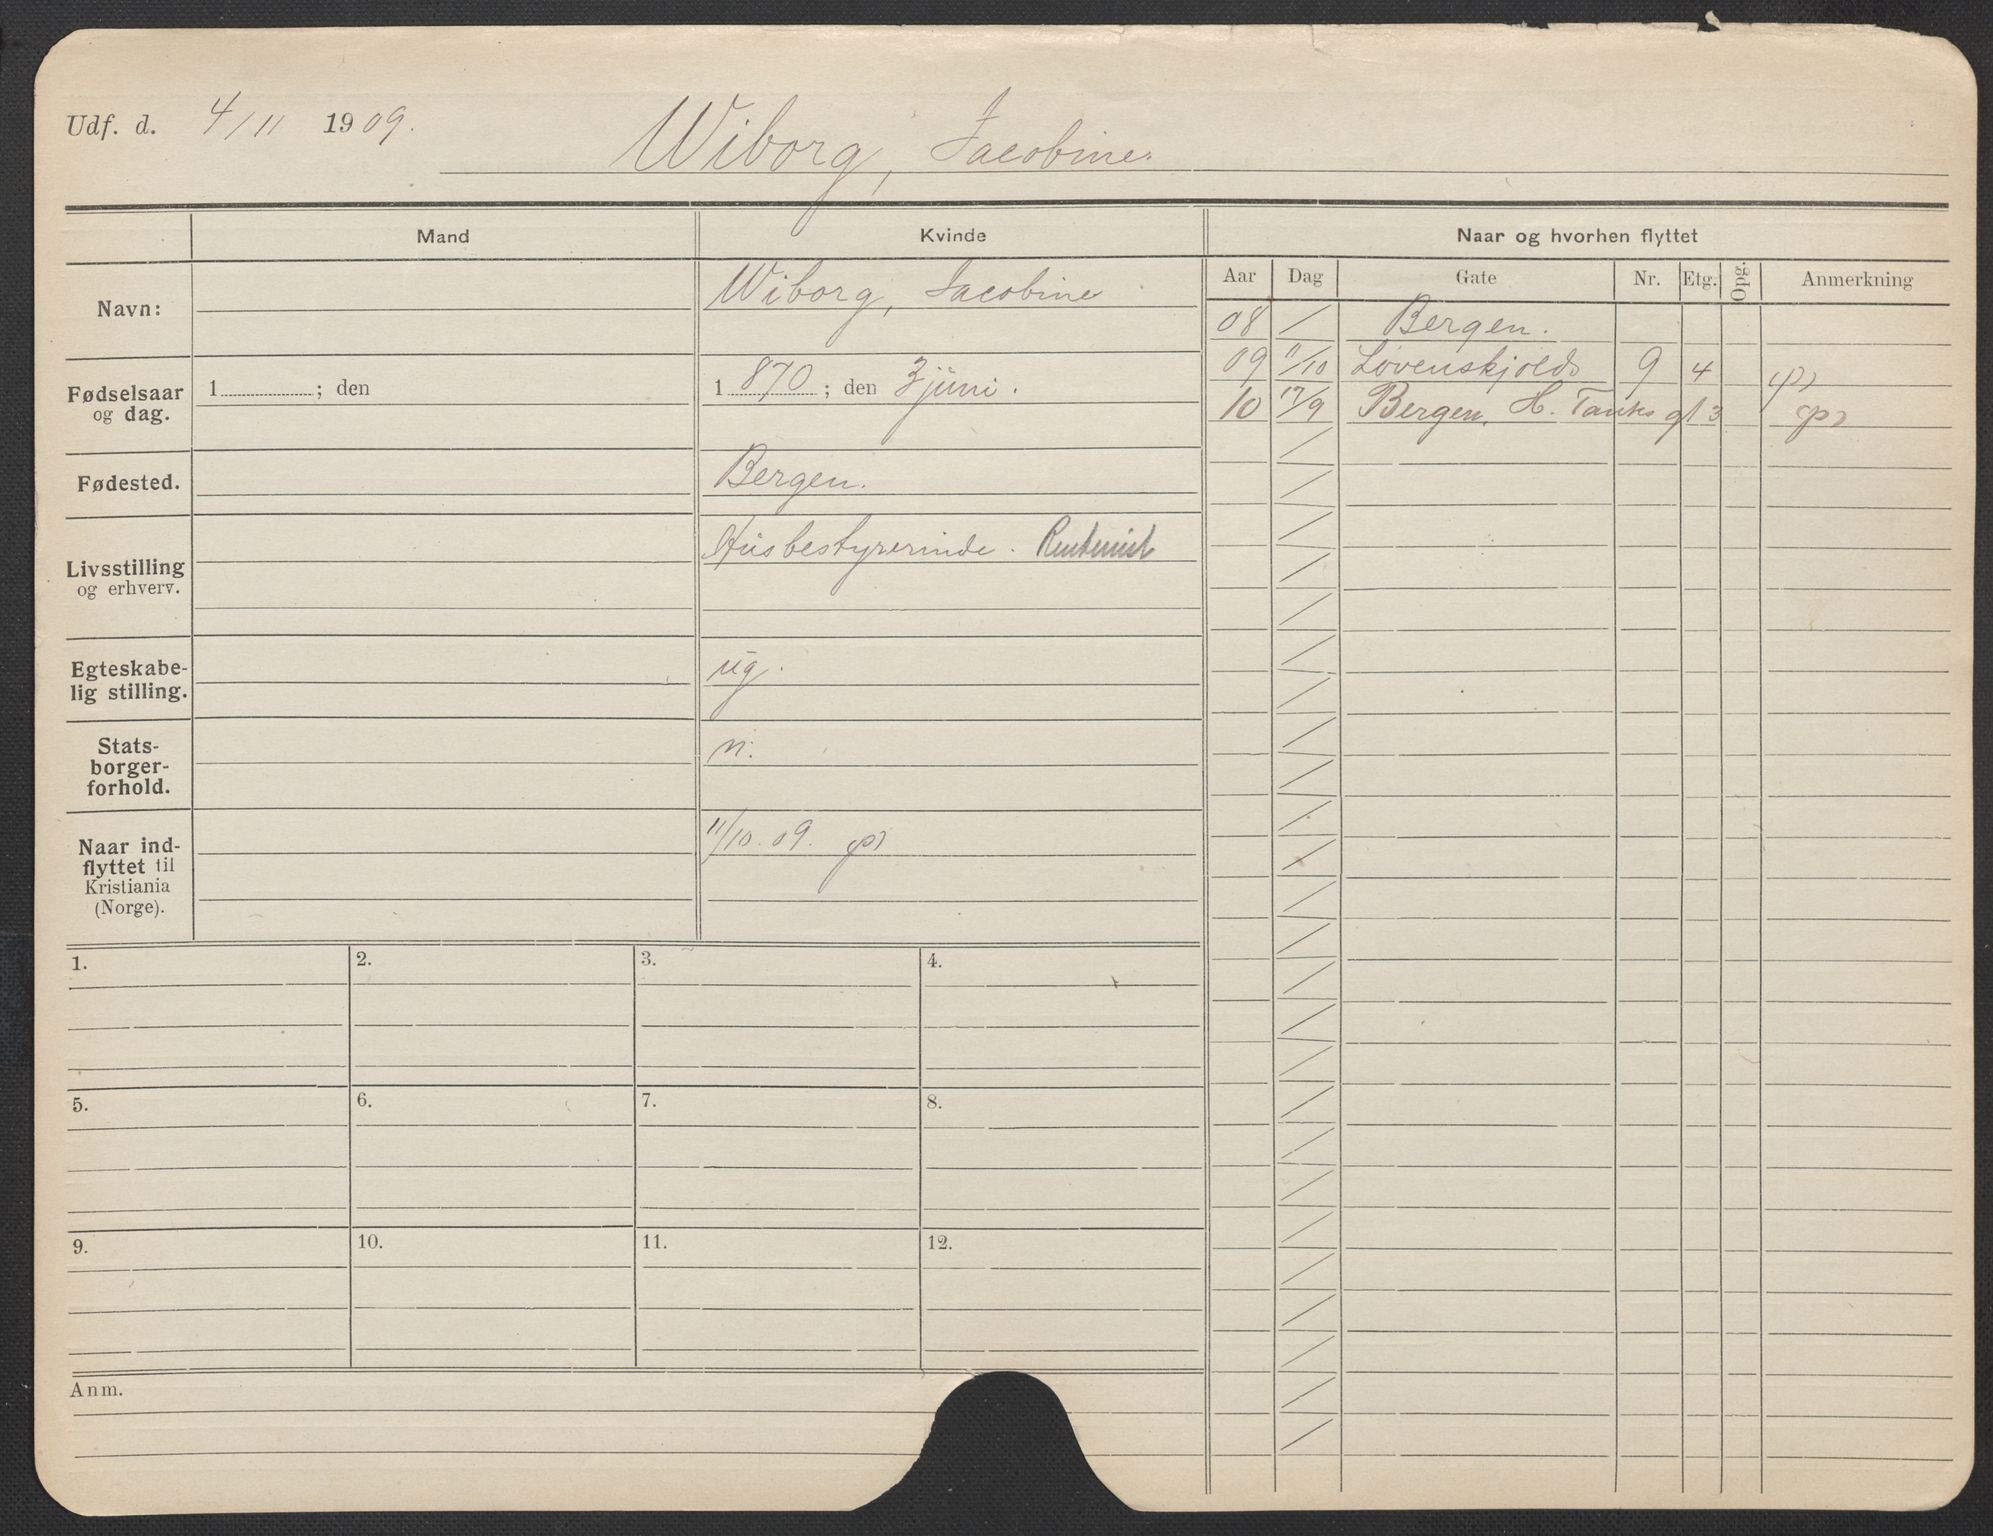 Udf. d. 4/11 1909.
Wiborg, Jacobine.
Mand
Kvinde
Naar og hvorhen flyttet
Aar Dag Gate Nr. Etg. Opg. Anmerkning
Navn:
Wiborg, Jacobine
08 / Bergen.
09 11/10 Løvenskjolds 9 4
10 17/9 Bergen, H. Tanks g 13
Fødselsaar
og dag.
1 ; den
1 870 ; den 3 juni.
Fødested.
Bergen.
Livsstilling
og erhverv.
Husbestyrerinde. Rentenist
Egteskabe-
lig stilling.
ug.
Stats-
borger-
forhold.
n.
Naar ind-
flyttet til
Kristiania
(Norge).
11/10. 09.
1. 2. 3. 4.
5. 6. 7. 8.
9. 10. 11. 12.
Anm.